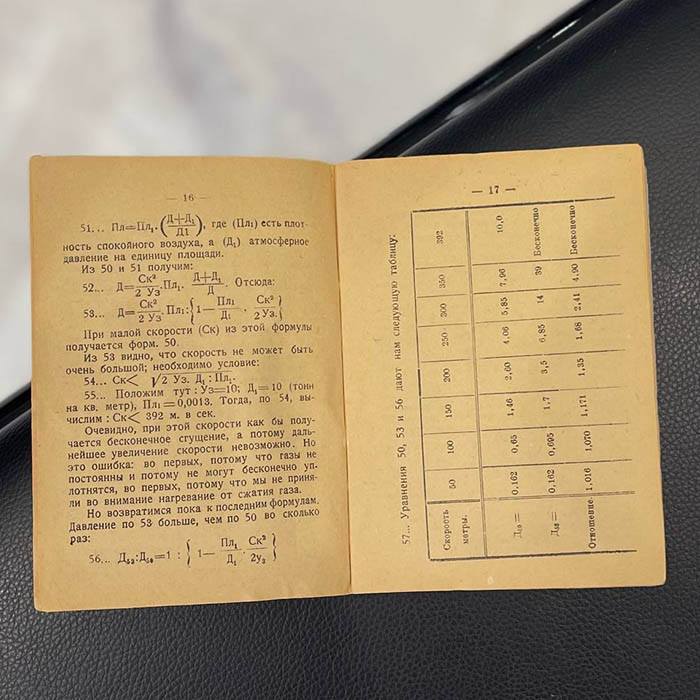 — 16 —
51... Пл=Пл₁.(Д+Д₁/Д1), где (Пл₁) есть плот-
ность спокойного воздуха, а (Д₁) атмосферное
давление на единицу площади.
Из 50 и 51 получим:
52... Д=Ск²/2 Уз.Пл₁. Д+Д₁/Д. Отсюда:
53... Д=Ск²/2 Уз.Пл₁:{1—Пл₁/Д₁ · Ск²/2 Уз.}
При малой скорости (Ск) из этой формулы
получается форм. 50.
Из 53 видно, что скорость не может быть
очень большой; необходимо условие:
54... Ск< √2 Уз. Д₁:Пл₁.
55... Положим тут: Уз=10; Д₁=10 (тонн
на кв. метр), Пл₁=0,0013. Тогда, по 54, вы-
числим: Ск< 392 м. в сек.
Очевидно, при этой скорости как бы полу-
чается бесконечное сгущение, а потому даль-
нейшее увеличение скорости невозможно. Но
это ошибка: во первых, потому что газы не
постоянны и потому не могут бесконечно уп-
лотнятся, во первых, потому что мы не приня-
ли во внимание нагревание от сжатия газа.
Но возвратимся пока к последним формулам.
Давление по 53 больше, чем по 50 во сколько
раз:
56... Д₅₃:Д₅₀=1 : {1— Пл₁/Д₁ · Ск²/2уз}
— 17 —
57... Уравнения 50, 53 и 56 дают нам следующую таблицу:
Скорость метры. 50 100 150 200 250 300 350 392
0,162 0,65 1,46 2,60 4,06 5,85 7,96 10,0
0,162 0,695 1,7 3,5 6,85 14 39 Бесконечно
Отношение 1,016 1,070 1,171 1,35 1,68 2,41 4,90 Бесконечно